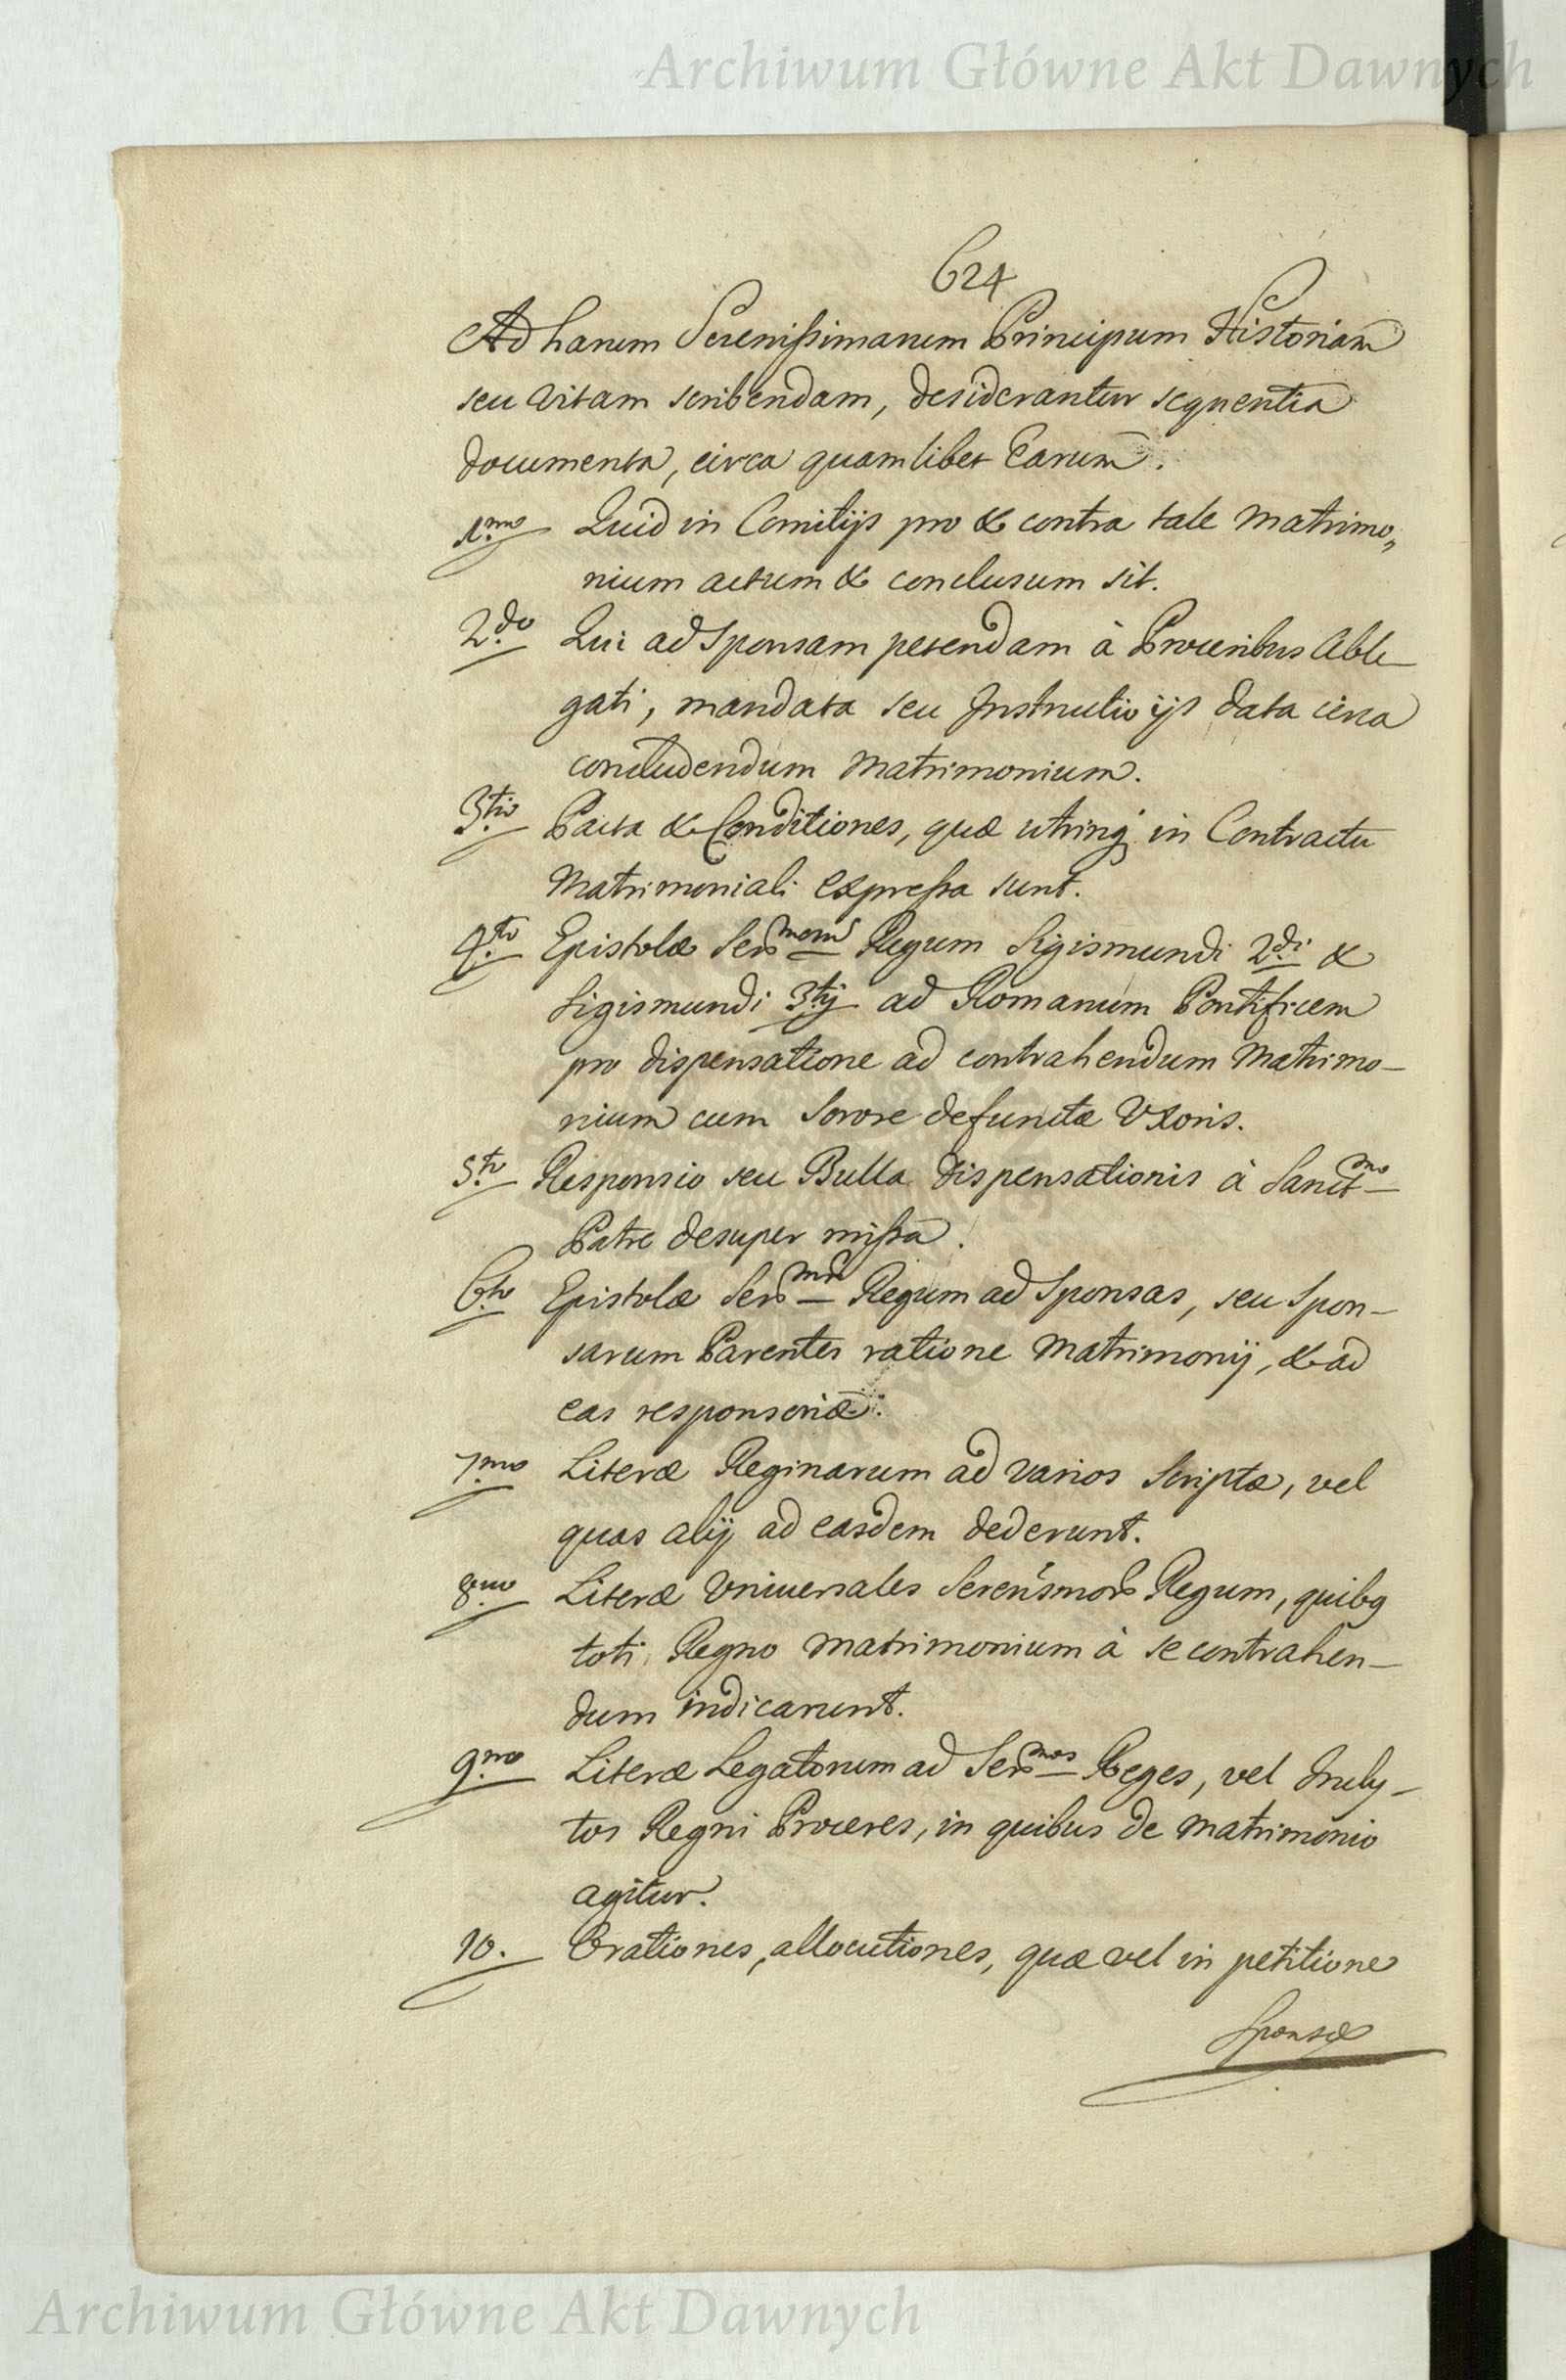 Archiwum Główne Akt Dawnych
624
Ad harum Serenissimarum Principum Historiam
seu vitam scribendam, desiderantur sequentia
documenta, circa quamlibet Earum.
1mo Quid in Comitijs pro & contra tale Matrimo„
nium actum & conclusum sit.
2do Qui ad Sponsam petendam à Proceribus Able-
gati, mandata seu Instructio ijs data circa
concludendum Matrimonium.
3tio Pacta & Conditiones, quæ utrinq in Contractu
Matrimoniali expressa sunt.
4to Epistolæ Sermorum Regum Sigismundi 2di &
Sigismundi 3tij ad Romanum Pontificem
pro dispensatione ad contrahendum Matrimo-
nium cum Sorore defunctæ Vxoris.
5to Responsio seu Bulla dispensationis à Sanctmo
Patre desuper missa.
6to Epistolæ Sermor Regum ad Sponsas, seu Spon-
sarum Parentes ratione Matrimonij, & ad
eas responsoriæ.
7mo Literæ Reginarum ad varios Scriptæ, vel
quas alij ad easdem dederunt.
8uo Literæ Vniuersales Serenismor Regum, quibq
toti Regno Matrimonium à se contrahen-
dum indicarunt.
9no Literæ Legatorum ad Sermos Reges, vel Incly-
tos Regni Proceres, in quibus de Matrimonio
agitur.
10. Orationes, allocutiones, quæ vel in petitione
Sponsæ
Archiwum Główne Akt Dawnych